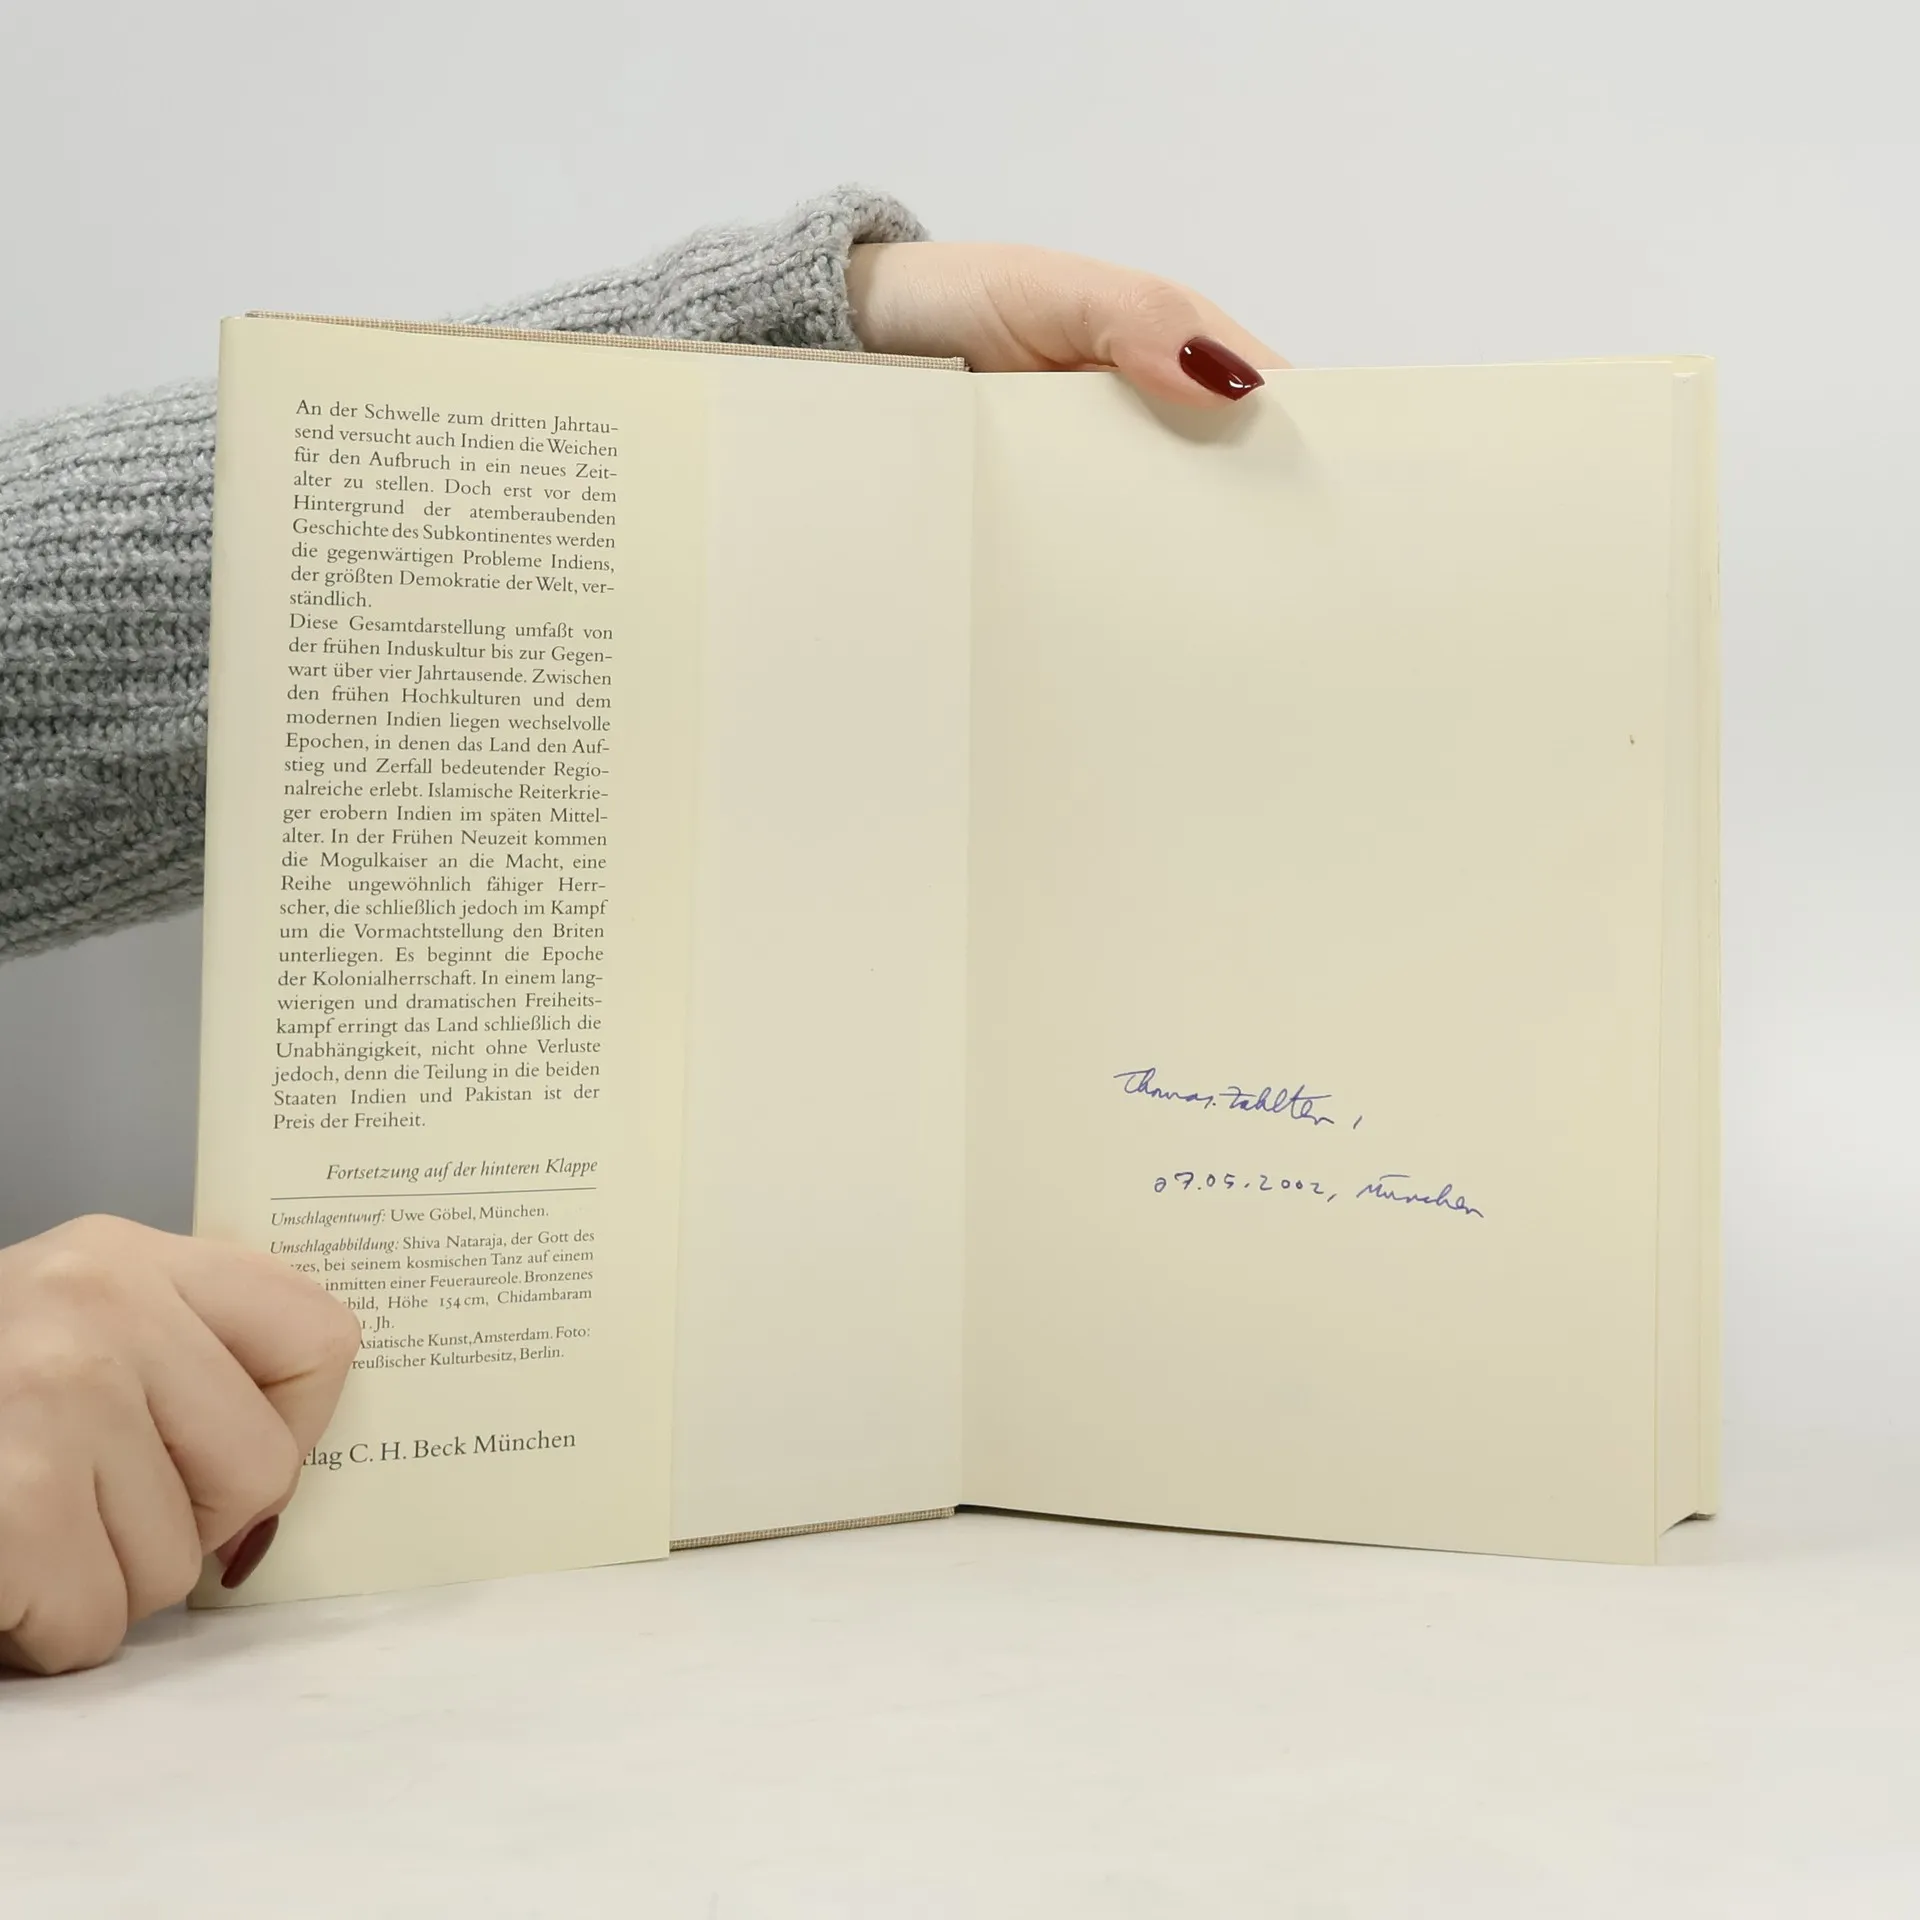 An der Schwelle zum dritten Jahrtau-
send versucht auch Indien die Weichen
für den Aufbruch in ein neues Zeit-
alter zu stellen. Doch erst vor dem
Hintergrund der atemberaubenden
Geschichte des Subkontinentes werden
die gegenwärtigen Probleme Indiens,
der größten Demokratie der Welt, ver-
ständlich.
Diese Gesamtdarstellung umfaßt von
der frühen Induskultur bis zur Gegen-
wart über vier Jahrtausende. Zwischen
den frühen Hochkulturen und dem
modernen Indien liegen wechselvolle
Epochen, in denen das Land den Auf-
stieg und Zerfall bedeutender Regio-
nalreiche erlebt. Islamische Reiterkrie-
ger erobern Indien im späten Mittel-
alter. In der Frühen Neuzeit kommen
die Mogulkaiser an die Macht, eine
Reihe ungewöhnlich fähiger Herr-
scher, die schließlich jedoch im Kampf
um die Vormachtstellung den Briten
unterliegen. Es beginnt die Epoche
der Kolonialherrschaft. In einem lang-
wierigen und dramatischen Freiheits-
kampf erringt das Land schließlich die
Unabhängigkeit, nicht ohne Verluste
jedoch, denn die Teilung in die beiden
Staaten Indien und Pakistan ist der
Preis der Freiheit.
Fortsetzung auf der hinteren Klappe
Umschlagentwurf: Uwe Göbel, München.
Umschlagabbildung: Shiva Nataraja, der Gott des
zes, bei seinem kosmischen Tanz auf einem
inmitten einer Feueraureole. Bronzenes
bild, Höhe 154 cm, Chidambaram
1. Jh.
Asiatische Kunst, Amsterdam. Foto:
reußischer Kulturbesitz, Berlin.
lag C. H. Beck München
Thomas
07.05.2002, München